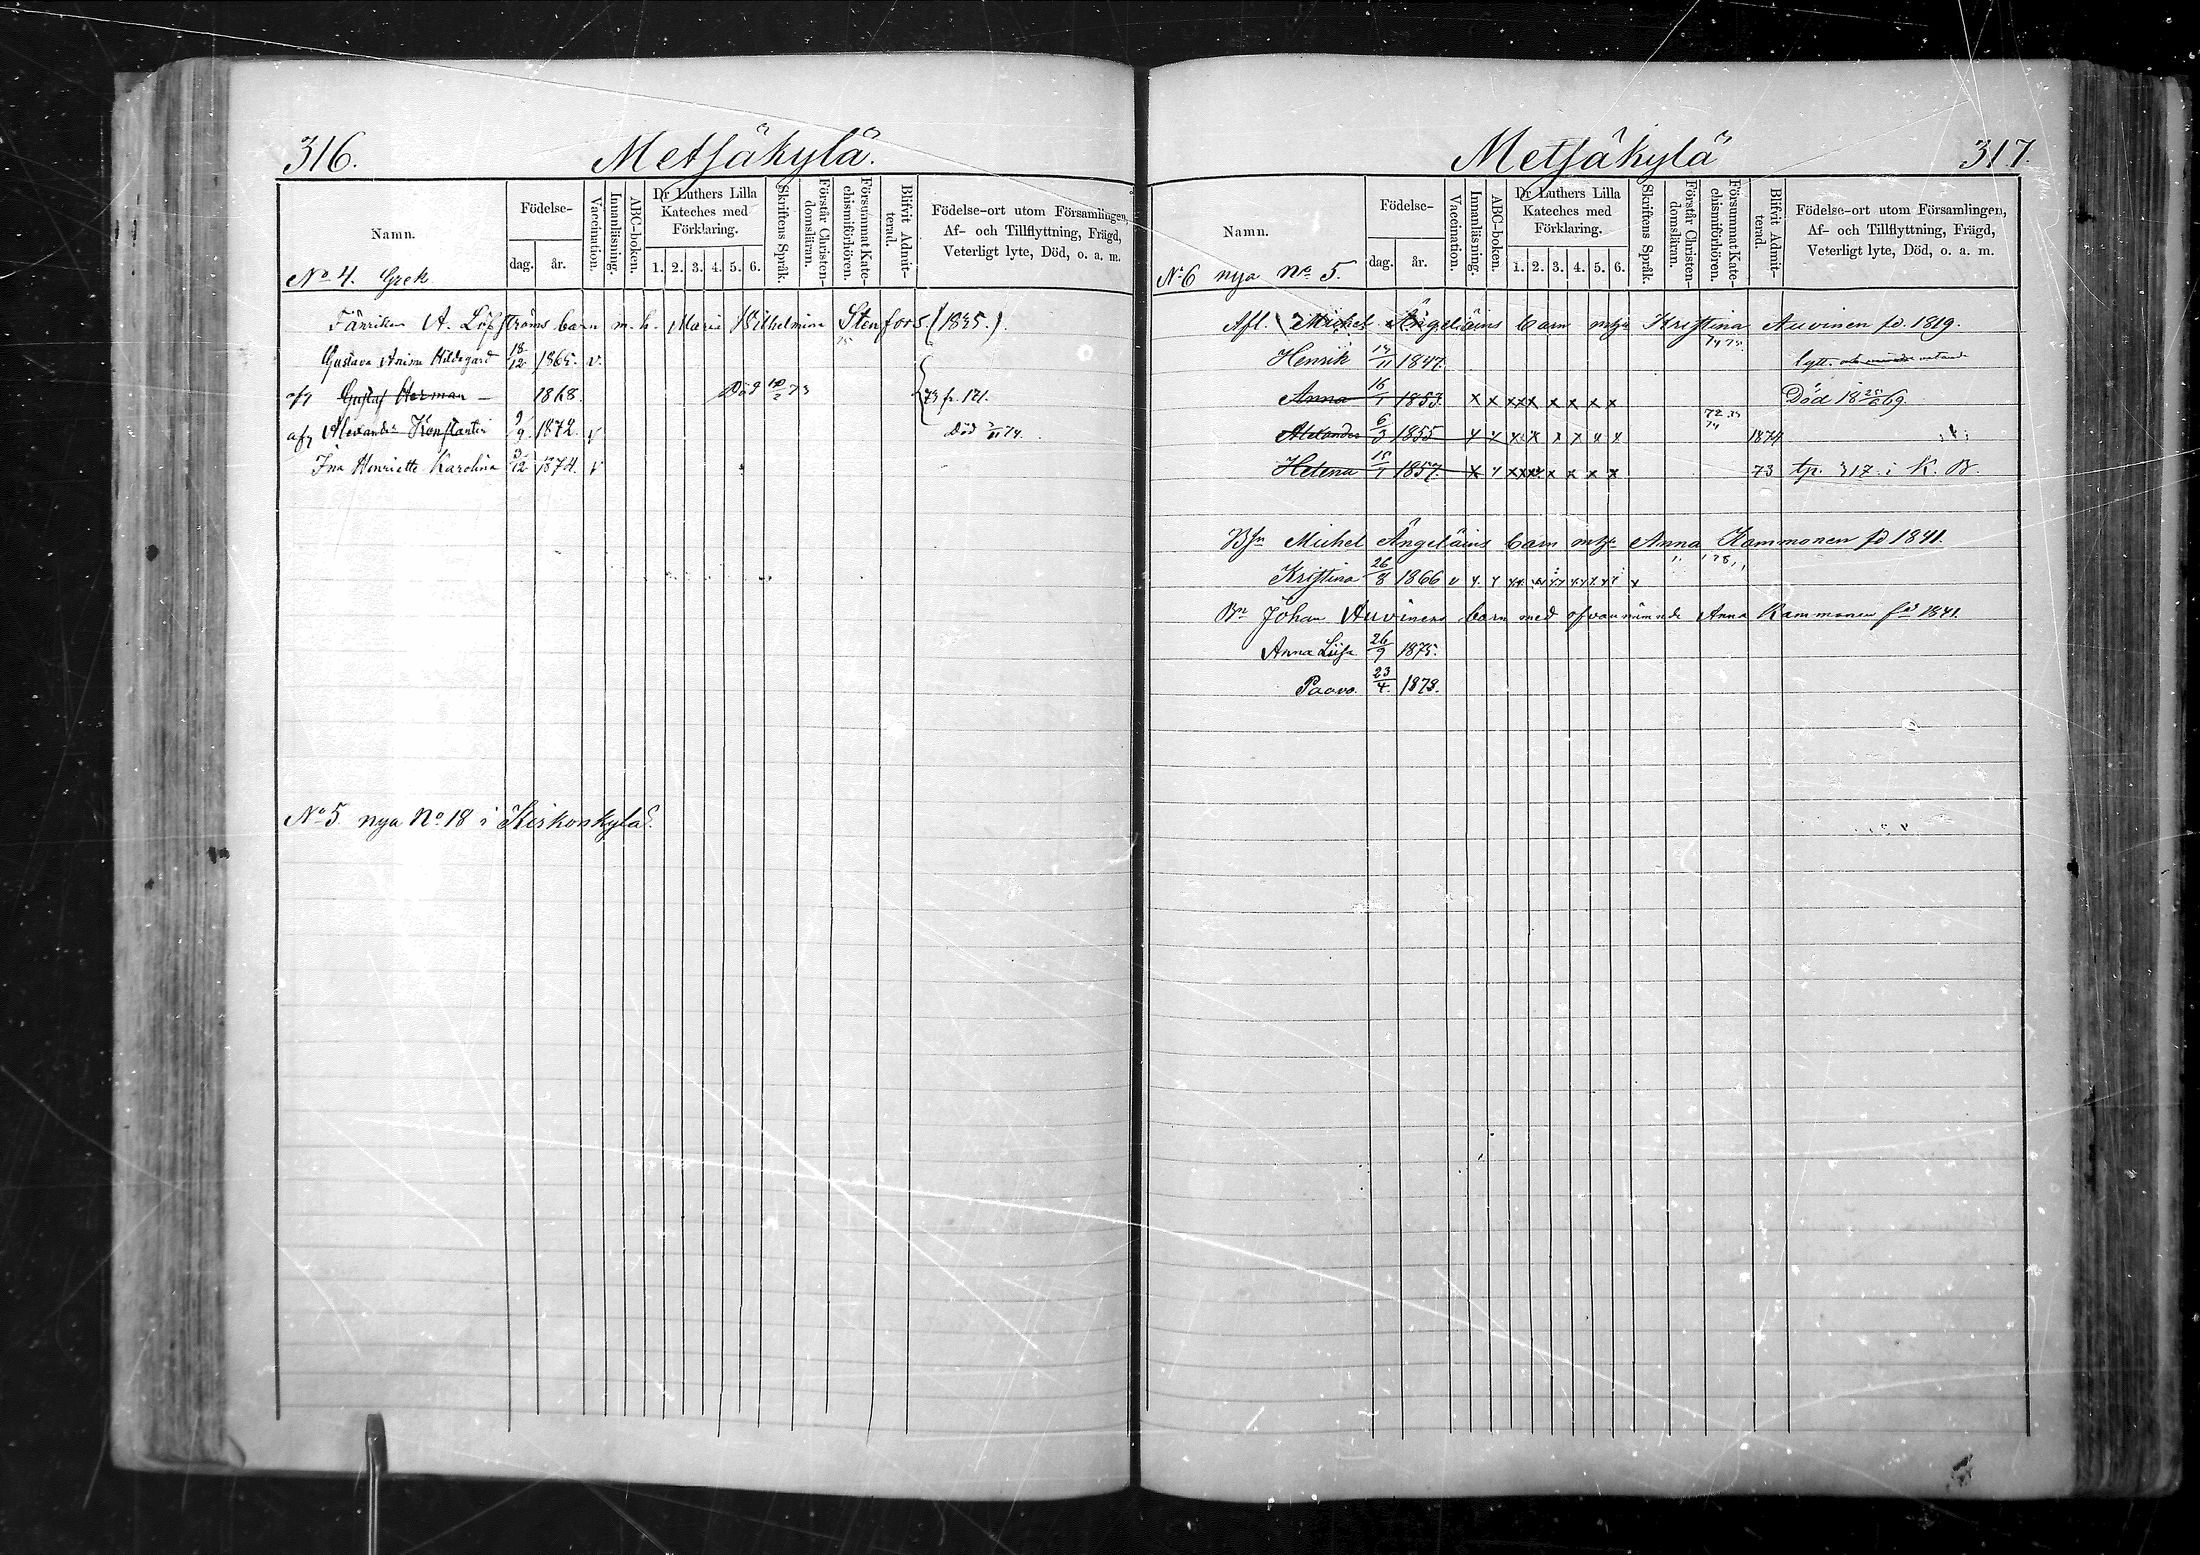 316. Metsäkylä.
Namn. Födelse- dag. år. Vaccination. Innanläsning. ABC-boken. Dr Luthers Lilla Kateches med Förklaring. 1. 2. 3. 4. 5. 6. Skriftens Språk. Förstår Christendomsläran. Försummat Katechismiförhören. Blifvit Admitterad. Födelse-ort utom Församlingen, Af- och Tillflyttning, Frägd, Veterligt lyte, Död, o. a. m.
No 4. Grek.
Fänriken A. Löfströms barn m. h. Maria Wilhelmina Stenfors (1835.)
Gustava Hildegard 18/12 1865. v.
Gustaf Herman 1868. Död 73 73 fr. 121.
Alexander Konstantin 9/9 1872. v Död 74.
Ina Henriette Karolina 3/12 1874. v
No 5. nya No 18 i Kirkonkylä.
Metsäkylä 317.
Namn. Födelse- dag. år. Vaccination. Innanläsning. ABC-boken. Dr Luthers Lilla Kateches med Förklaring. 1. 2. 3. 4. 5. 6. Skriftens Språk. Förstår Christendomsläran. Försummat Katechismiförhören. Blifvit Admitterad. Födelse-ort utom Församlingen, Af- och Tillflyttning, Frägd, Veterligt lyte, Död, o. a. m.
No 6 nya No 5.
Afl. Michel Ängeläins barn Kristina Auvinen fd. 1819.
Henrik 1847.
Anna 16/1 1853 x x x x x x x x x Död 18 69.
Alexander 6/3 1855 x x x x x x x x 1874
Helena 15/1 1857. x x x x x x x x x 73 tp. 317. i K. B.
Michel Ängeläins barn Anna Kammonen fd 1841.
Kristina 26/8 1866
Bn Johan Auvinens barn med ofvannämnde Anna Kammonen fd 1841.
Anna Liisa 26/9 1875.
Paavo. 23/4. 1878.